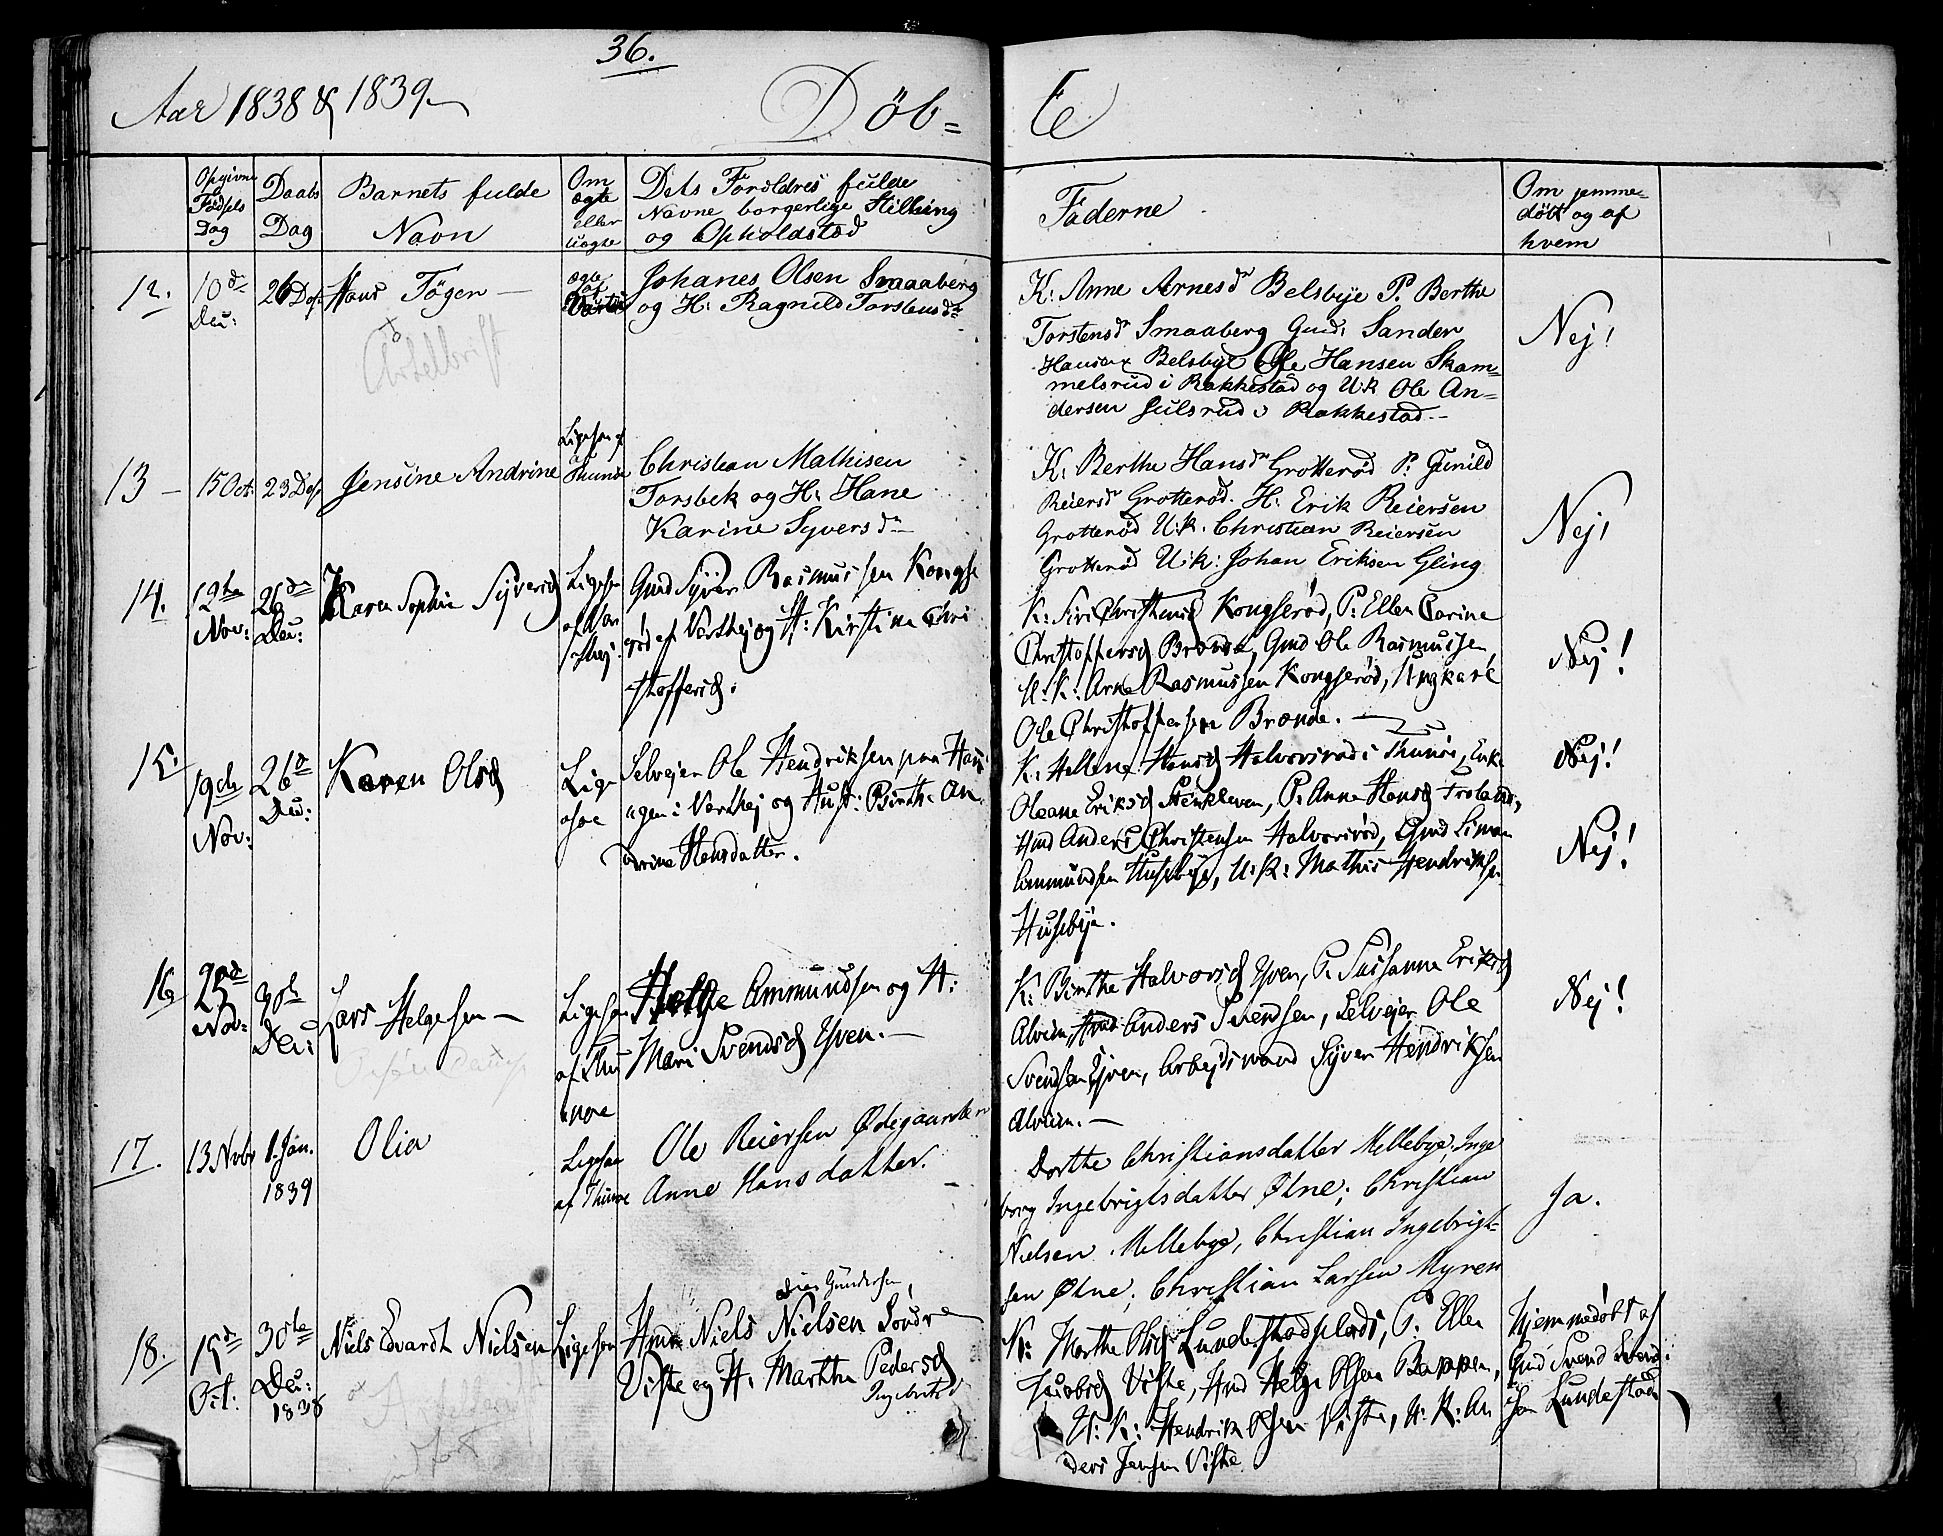 36.
Aar 1838 & 1839
Döb=
te
Opgivne Fødsels Dag
Daabs Dag
Barnets fulde Navn
Om ægte eller uægte
Dets Foreldres fulde
Navne borgerlige Stilling
og Opholdsted
Faderne
Om jemme-
døbt og af
hvem
12.
10 d
Dec:
26 Des
Hans Tögen —
Attelbrift
ægte
af
Johanes Olsen Smaaberg
og H: Ragnild Torstensd
K: Anne Arnesd Belsbye P. Berthe
Torstensd Smaaberg Gmd: Sander
Hansen Belsbye Ole Hansen Skam=
melsrud i Rakkestad og U:k Ole An=
dersen Julsrud i Rakkestad —
Nej!
13 —
15 Oct:
23 Des
Jensine Andrine
Thunøe
Christian Mathisen
Torsbek og H: Hane
Karine Syversd
K: Berthe Hansd Grotterød P: Gunild
Reiersd Grotterød. H: Erik Reiersen
Grotterød U:k. Christian Reiersen
Grotterød U:k: Johan Eriksen Gling
Nej!
14.
12te
Nov:
26 d
Dec:
Karen Sophie Syversd
Ligesaa
af Var
Gmd Syver Rasmussen Kongse
rød af Varthej og H: Kirstine Chri
stoffersd.
K: Siri Christensd Kongserød, P: Ellen Carine
Christoffersd Brande, Gmd Ole Rasmussen,
U:K: Arne Rasmussen Kongserød, Ungkarl
Ole Christoffersen Brande. —
Nej!
15.
19de
Nov:
26 d
Dec:
Karen Olsd
Lige
Selvejer Ole Hendriksen paa Hau
agen i Varthej og Hust: Birthe An
drine Hansdatter.
K: Hellene Hansd Halvorsrød i Thunøe, Enke
Oleane Eriksd Stenkleven, P: Anne Hansd
Hmd Anders Christensen Halvorsrød, Gmd Simen
Ammundsen Husebye, U:K: Mathis Hendriksen
Husebye.
Nej!
Nej!
16
25
Nov:
30te
Dec:
Lars Helgesen —
Ligesaa
af Thu
nøe
Helge Ammundsen og H:
Mari Svendsd Yven. —
K: Birthe Halvorsd Yven, P. Susanne Eriksd
Alvim, Anders Svendsen, Selvejer Ole
Svendsen Yven, Arbejdsmand Syver Hendriksen
Alvim. —
Nej!
17.
13 Nobr
1. Jan.
1839
Olia
Ligesaa
af Thunøe
Ole Reiersen Ødegaarden
Anne Hansdatter.
Dorthe Christiansdatter Mellebye, Inge
borg Ingebrigtsdatter Øtne; Christian
Nielsen Mellebye, Christian Ingebrigt=
sen Øtne; Christian Larsen Myren
Ja.
18.
15 d
Oct:
30te
Dec:
1838
Niels Edvardt Nielsen
Ligesaa
Gundersen
Hmd Niels Nielsen Søndre
Viste og H: Marthe Pedersd
Ingebretsd
K: Marthe Olsd Lundestadplads, P. Ellen
Jacobsd Viste, Hmd Helge Olsen
U:K: Hendrik Olsen Viste, U:K: An
ders Jensen Viste
Hjemmedøbt af
Gmd Svend Svend
sen Lundestad